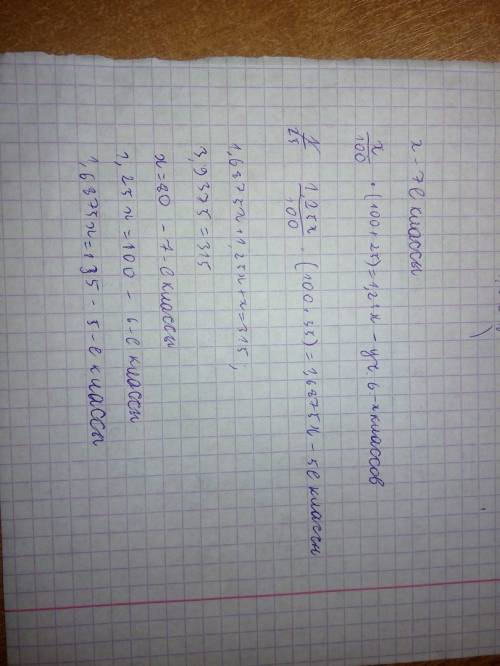 x - 7е классы
x/100 · (100+25)=1,25x - уч. 6-х классов
1,25x/100 · (100+35)=1,6875x - 5е классы
1,6875x+1,25x+x=315;
3,9375=315
x=80 - 7-е классы
1,25x=100 - 6-е классы
1,6875x=135 - 5-е классы